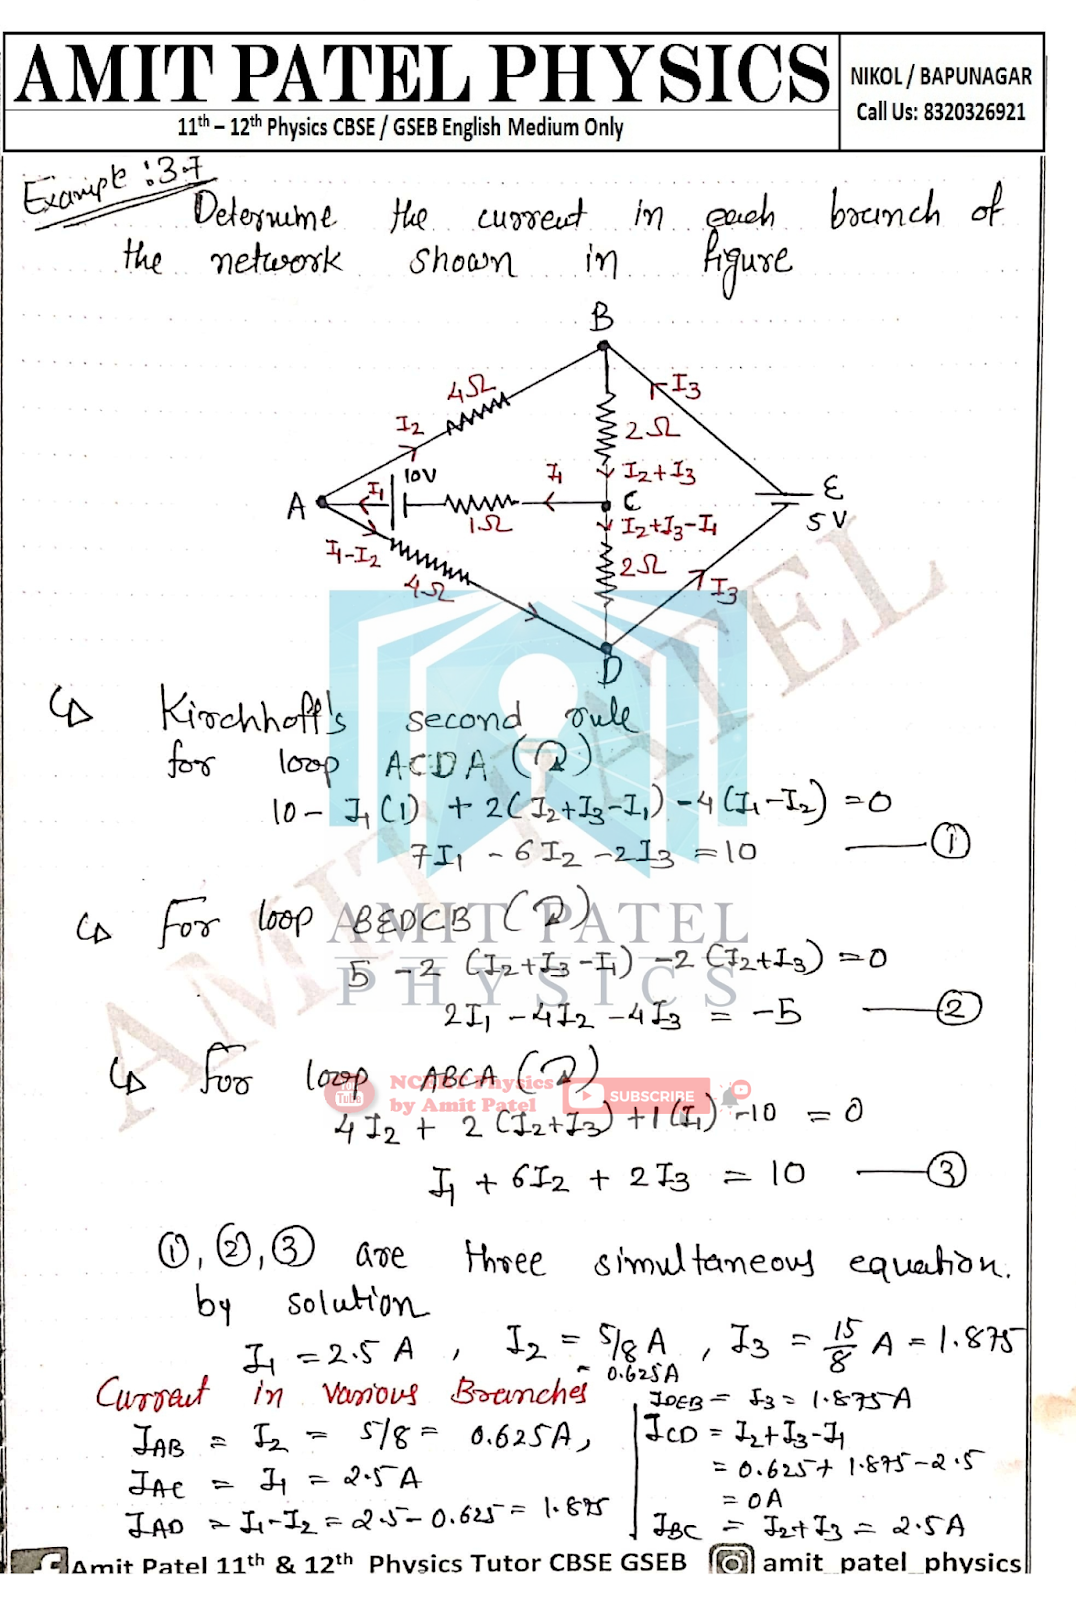 AMIT PATEL PHYSICS
11th – 12th Physics CBSE / GSEB English Medium Only
NIKOL / BAPUNAGAR
Call Us: 8320326921
Example :3.7
Determine the current in each branch of
the network shown in figure
B
4Ω
I3
I2
2Ω
10V
I2+I3
A
I1
I1
C
ε
1Ω
5V
I2+I3-I1
I1-I2
4Ω
2Ω
I3
D
Kirchhoff's second rule
for loop ACDA
10 - I1(1) + 2(I2+I3-I1) - 4(I1-I2) = 0
7I1 - 6I2 - 2I3 = 10 ——①
For loop BEDCB
AMIT PATEL
5 - 2 (I2+I3-I1) - 2 (I2+I3) = 0
PHYSICS
2I1 - 4I2 - 4I3 = -5 ——②
AMIT PATEL
for loop ABCA
NCERT Physics
by Amit Patel
You Tube
SUBSCRIBE
4I2 + 2(I2+I3) + 1(I1) - 10 = 0
I1 + 6I2 + 2I3 = 10 ——③
①, ②, ③ are three simultaneous equation.
by solution
I1 = 2.5 A , I2 = 5/8 A = 0.625A , I3 = 15/8 A = 1.875
Current in various Branches
IAB = I2 = 5/8 = 0.625A,
IAC = I1 = 2.5A
IAD = I1-I2 = 2.5-0.625 = 1.875
IDEB = I3 = 1.875A
ICD = I2+I3-I1
= 0.625+1.875-2.5
= 0A
IBC = I2+I3 = 2.5A
Amit Patel 11th & 12th Physics Tutor CBSE GSEB
amit_patel_physics